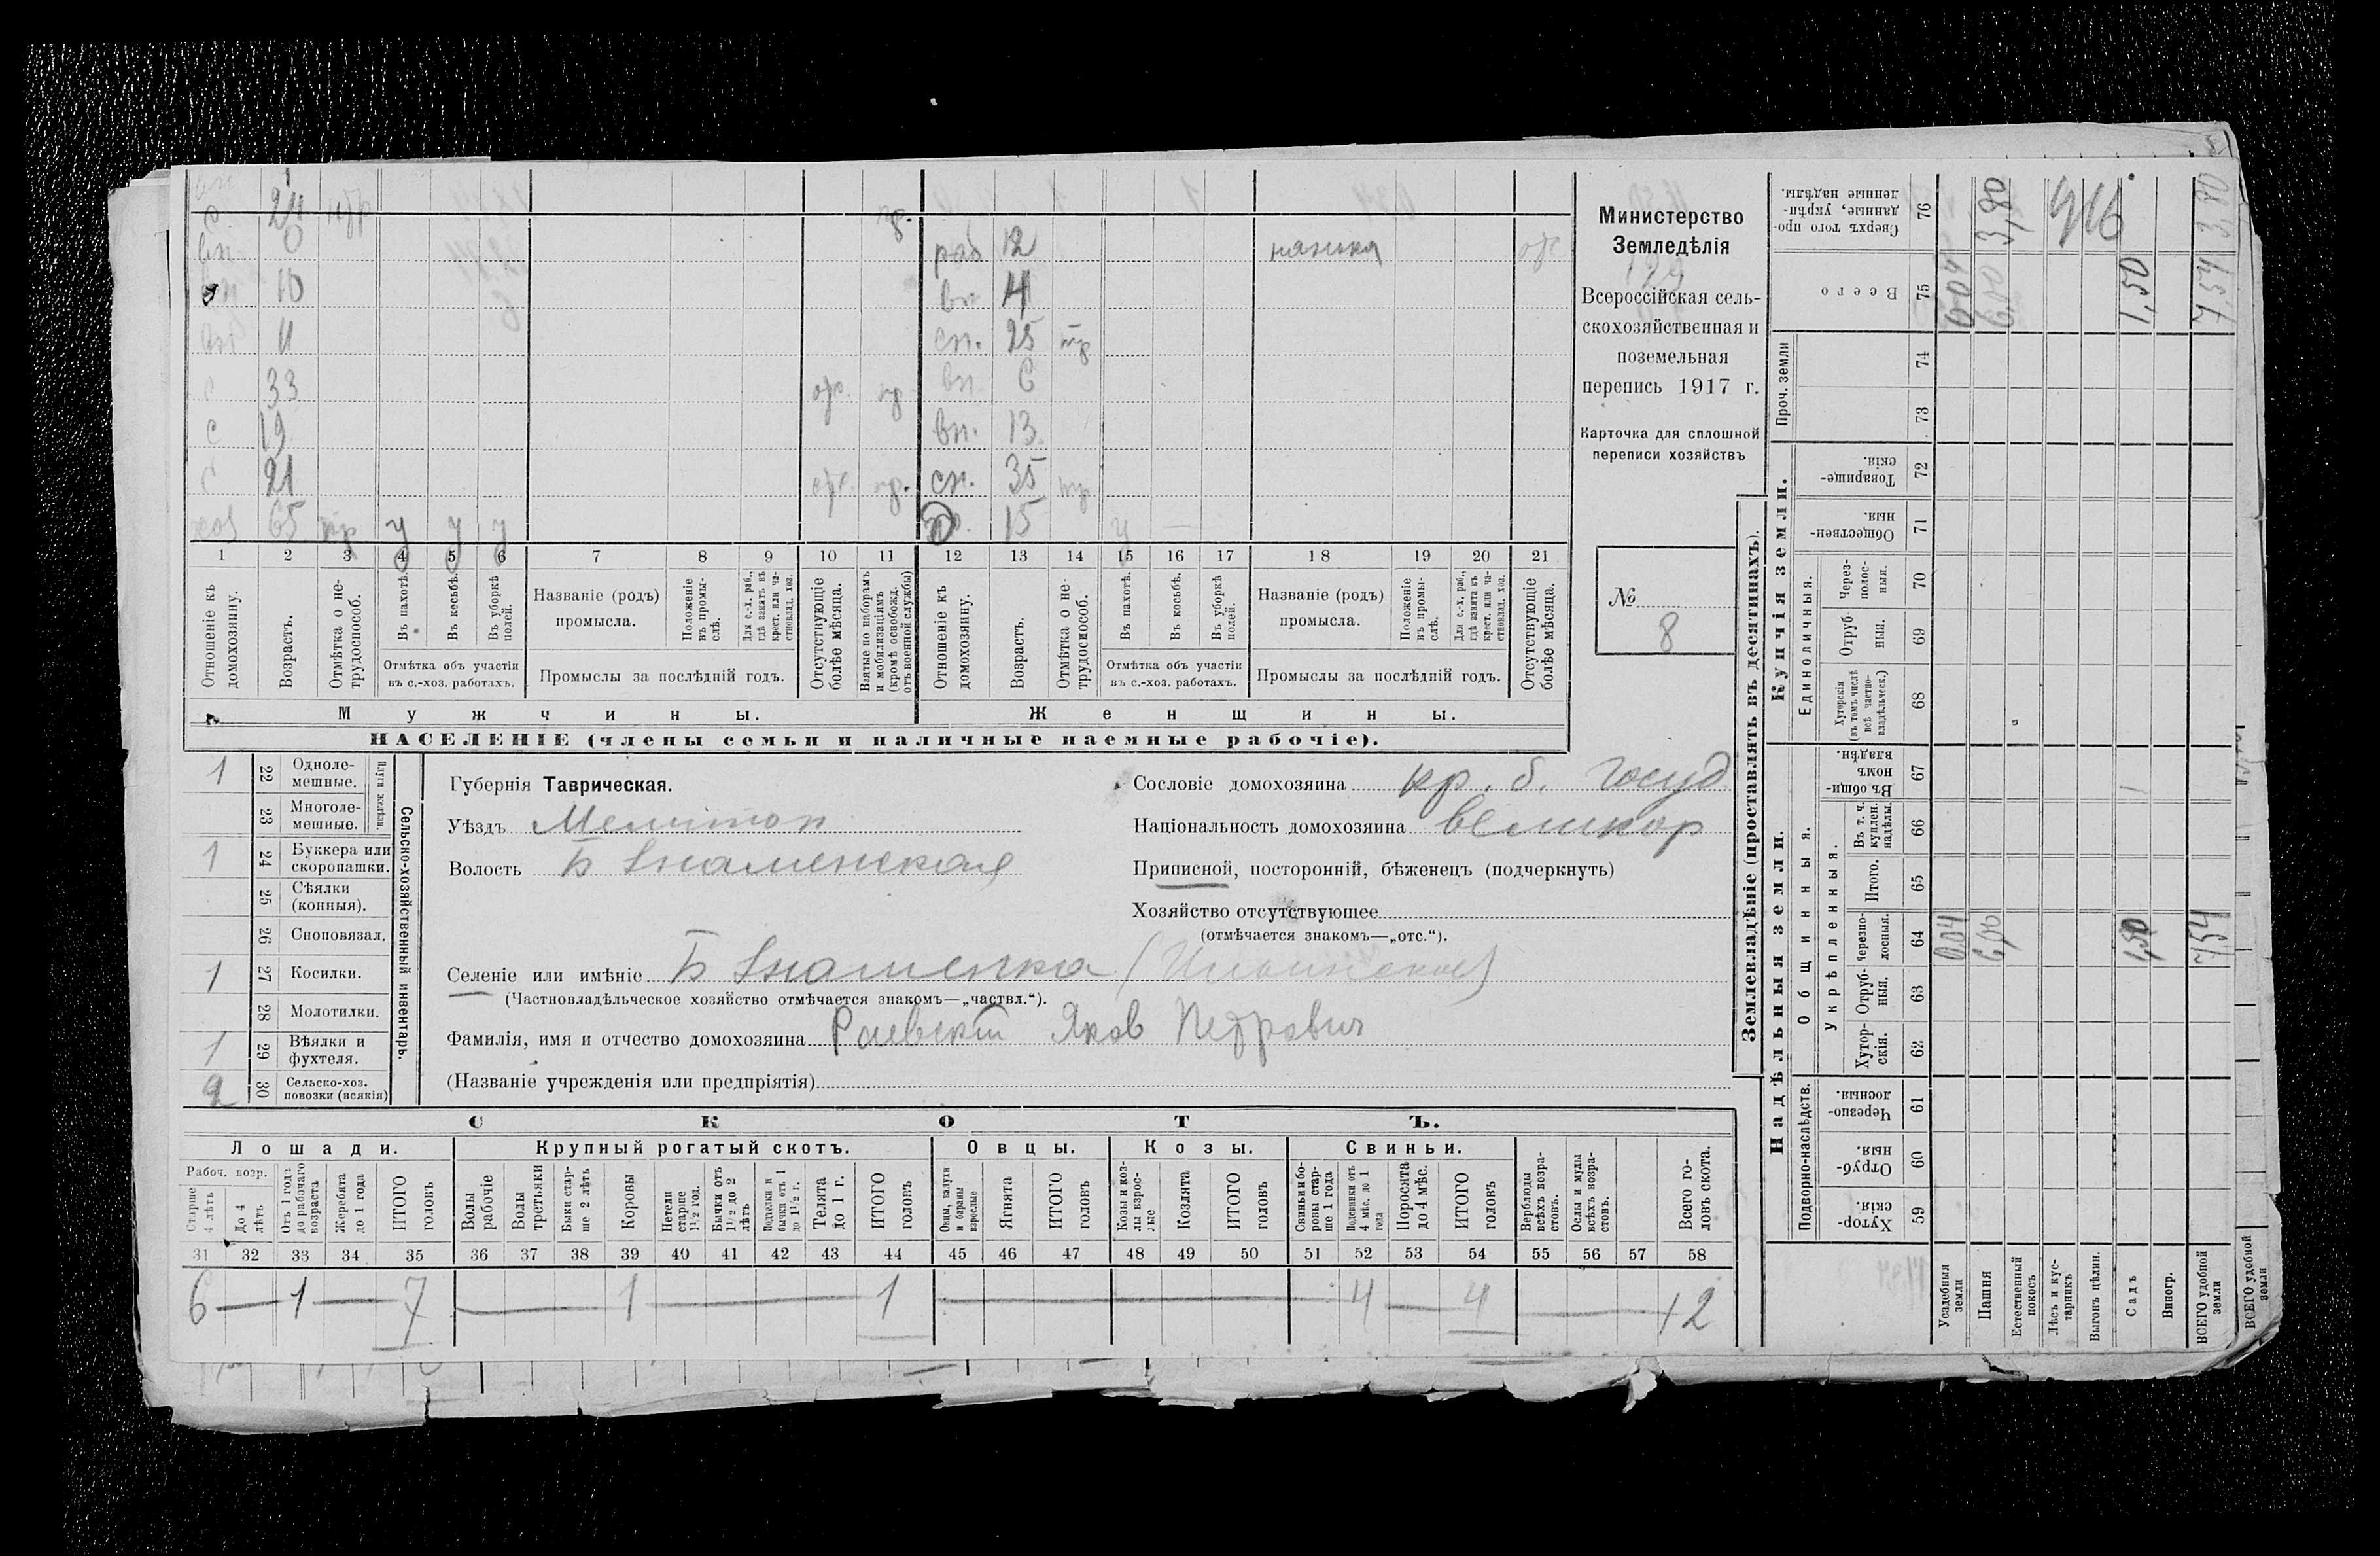 24
0
10
11
33
19
21
65
у у у
раб 12 нянька
вн. 4
сн. 25
вн. 6
вн. 13
сн. 35
15
1 2 3 4 5 6 7 8 9 10 11 12 13 14 15 16 17 18 19 20 21
Отношеніе къ домохозяину.
Возрастъ.
Отмѣтка о нетрудоспособ.
Въ пахотѣ.
Въ косьбѣ.
Въ уборкѣ полей.
Отмѣтка объ участіи
въ с.-хоз. работахъ.
Названіе (родъ)
промысла.
Положеніе въ промыслѣ.
Для с.-х. раб., гдѣ занятъ въ крест. или частновлад. хоз.
Промыслы за послѣдній годъ.
Отсутствующіе болѣе мѣсяца.
Взятые по наборамъ и мобилизаціямъ (кромѣ освобожд. отъ военной службы)
Отношеніе къ домохозяину.
Возрастъ.
Отмѣтка о нетрудоспособ.
Въ пахотѣ.
Въ косьбѣ.
Въ уборкѣ полей.
Отмѣтка объ участіи
въ с.-хоз. работахъ.
Названіе (родъ)
промысла.
Положеніе въ промыслѣ.
Для с.-х. раб., гдѣ занята въ крест. или частновлад. хоз.
Промыслы за послѣдній годъ.
Отсутствующіе болѣе мѣсяца.
Мужчины.
Женщины.
НАСЕЛЕНІЕ (члены семьи и наличные наемные рабочіе).
Министерство
Земледѣлія
Всероссійская сель-
скохозяйственная и
поземельная
перепись 1917 г.
Карточка для сплошной
переписи хозяйствъ
№
8
1 22 Одноле-
мешные.
23 Многоле-
мешные.
Плуги желѣзн.
1 24 Буккера или
скоропашки.
25 Сѣялки
(конныя).
26 Сноповязал.
1 27 Косилки.
28 Молотилки.
1 29 Вѣялки и
фухтеля.
2 30 Сельско-хоз.
повозки (всякія)
Сельско-хозяйственный инвентарь.
Губернія Таврическая.
Уѣздъ Мелитоп
Волость Б Знаменская
Селеніе или имѣніе Б Знаменка
(Частновладѣльческое хозяйство отмѣчается знакомъ—„частвл.“).
Фамилія, имя и отчество домохозяина Раевскій Яков Петрович
(Названіе учрежденія или предпріятія)
Сословіе домохозяина кр. б. госуд
Національность домохозяина великор
Приписной, посторонній, бѣженецъ (подчеркнуть)
Хозяйство отсутствующее
(отмѣчается знакомъ—„отс.“).
СКОТЪ.
Лошади.
Крупный рогатый скотъ.
Овцы.
Козы.
Свиньи.
Рабоч. возр.
Старше 4 лѣтъ
До 4 лѣтъ
Отъ 1 года до рабочаго возраста
Жеребята до 1 года
ИТОГО головъ
Волы рабочіе
Волы третьяки
Быки старше 2 лѣтъ
Коровы
Нетели старше 1½ год.
Бычки отъ 1½ до 2 лѣтъ
Телята до 1 г.
ИТОГО головъ
Овцы, валухи и бараны взрослые
Ягнята
ИТОГО головъ
Козы и козлы взрослые
Козлята
ИТОГО головъ
Свиньи и боровы старше 1 года
Подсвинки отъ 4 мѣс. до 1 года
Поросята до 4 мѣс.
ИТОГО головъ
Верблюды всѣхъ возрастовъ.
Ослы и мулы всѣхъ возрастовъ.
Всего головъ скота.
31 32 33 34 35 36 37 38 39 40 41 42 43 44 45 46 47 48 49 50 51 52 53 54 55 56 57 58
6 — 1 — 7 — 1 — 1 — 4 — 4 — 12
Землевладѣніе (проставлять въ десятинахъ).
Надѣльныя земли.
Купчія земли.
Проч. земли
Подворно-наслѣдств.
Общинныя.
Укрѣпленныя.
Единоличныя.
Сверхъ того проданные, укрѣпленные надѣлы. 76
Всего 75
74
73
Товарищескія. 72
Общественныя. 71
Черезполосныя. 70
Отрубныя. 69
Хуторскія (въ томъ числѣ всѣ частновладѣльческ.) 68
Въ общинномъ владѣн. 67
Въ т. ч. куплен. надѣлы. 66
Итого. 65
Черезполосныя. 64
Отрубныя. 63
Хуторскія. 62
Черезполосныя. 61
Отрубныя. 60
Хуторскія. 59
Усадебныя земли 0,04 0,04
Пашня 6,00 6,00 3,80
Естественный покосъ
Лѣсъ и кустарникъ
Выгонъ цѣлин.
Садъ 1,50 1,50
Виногр.
ВСЕГО удобной земли 7,54 7,54
ВСЕГО удобной земли